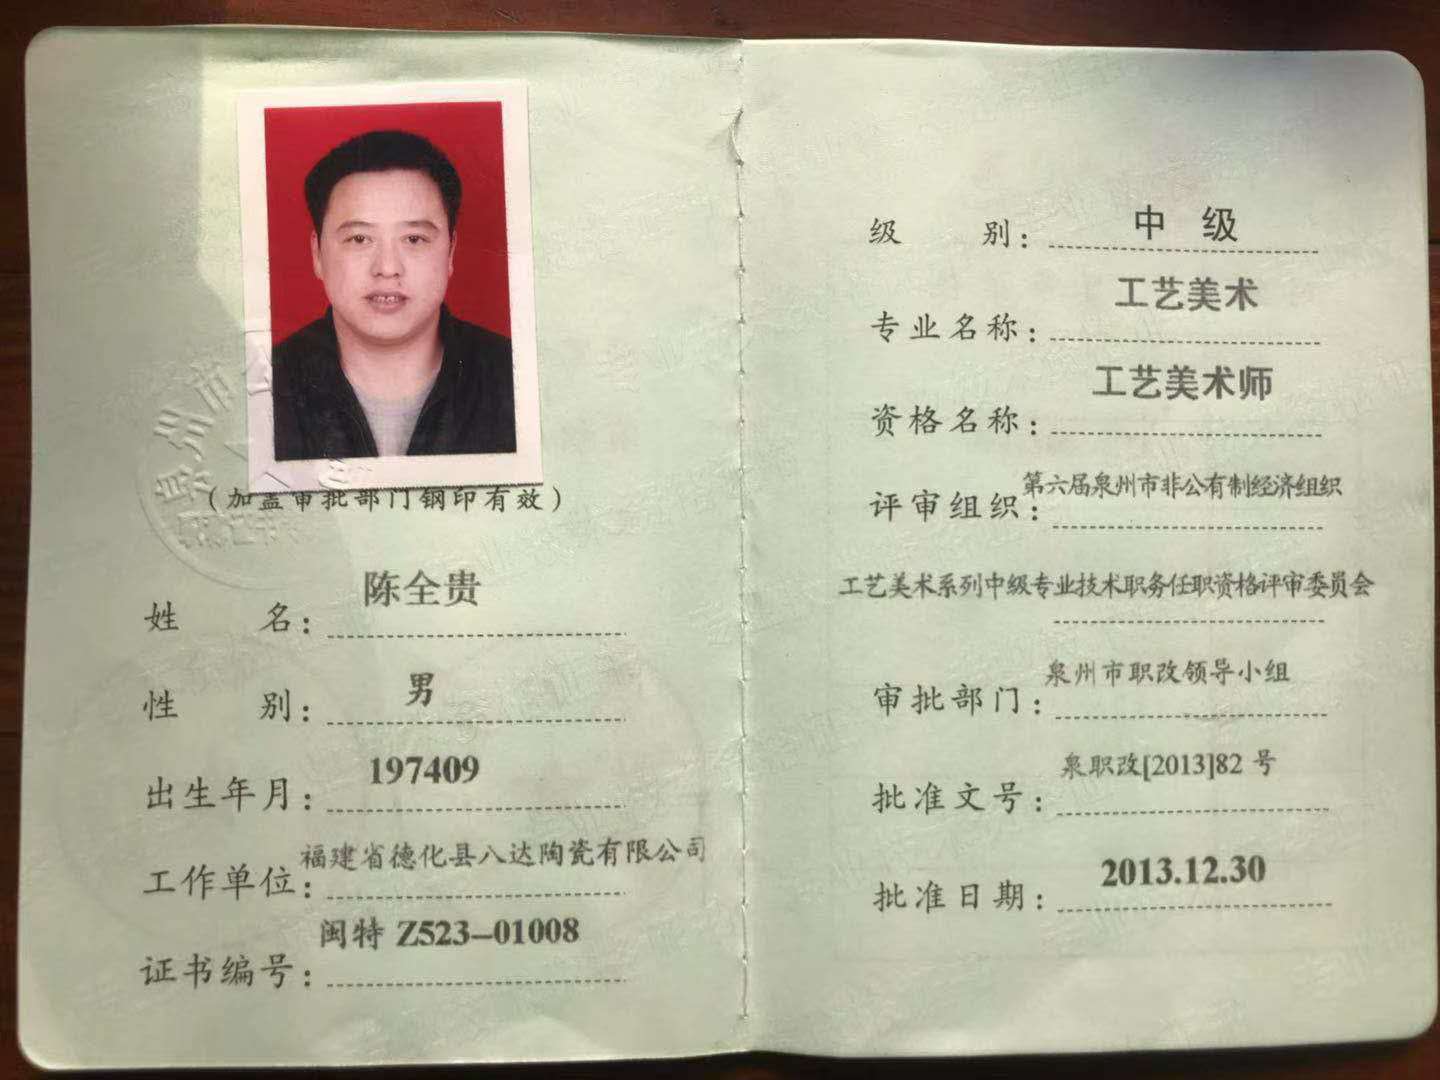 (加盖审批部门钢印有效)
姓名: 陈全贵
性别: 男
出生年月: 197409
工作单位: 福建省德化县八达陶瓷有限公司
证书编号: 闽特 Z523-01008
级别: 中级
专业名称: 工艺美术
资格名称: 工艺美术师
评审组织: 第六届泉州市非公有制经济组织
工艺美术系列中级专业技术职务任职资格评审委员会
审批部门: 泉州市职改领导小组
批准文号: 泉职改[2013]82 号
批准日期: 2013.12.30